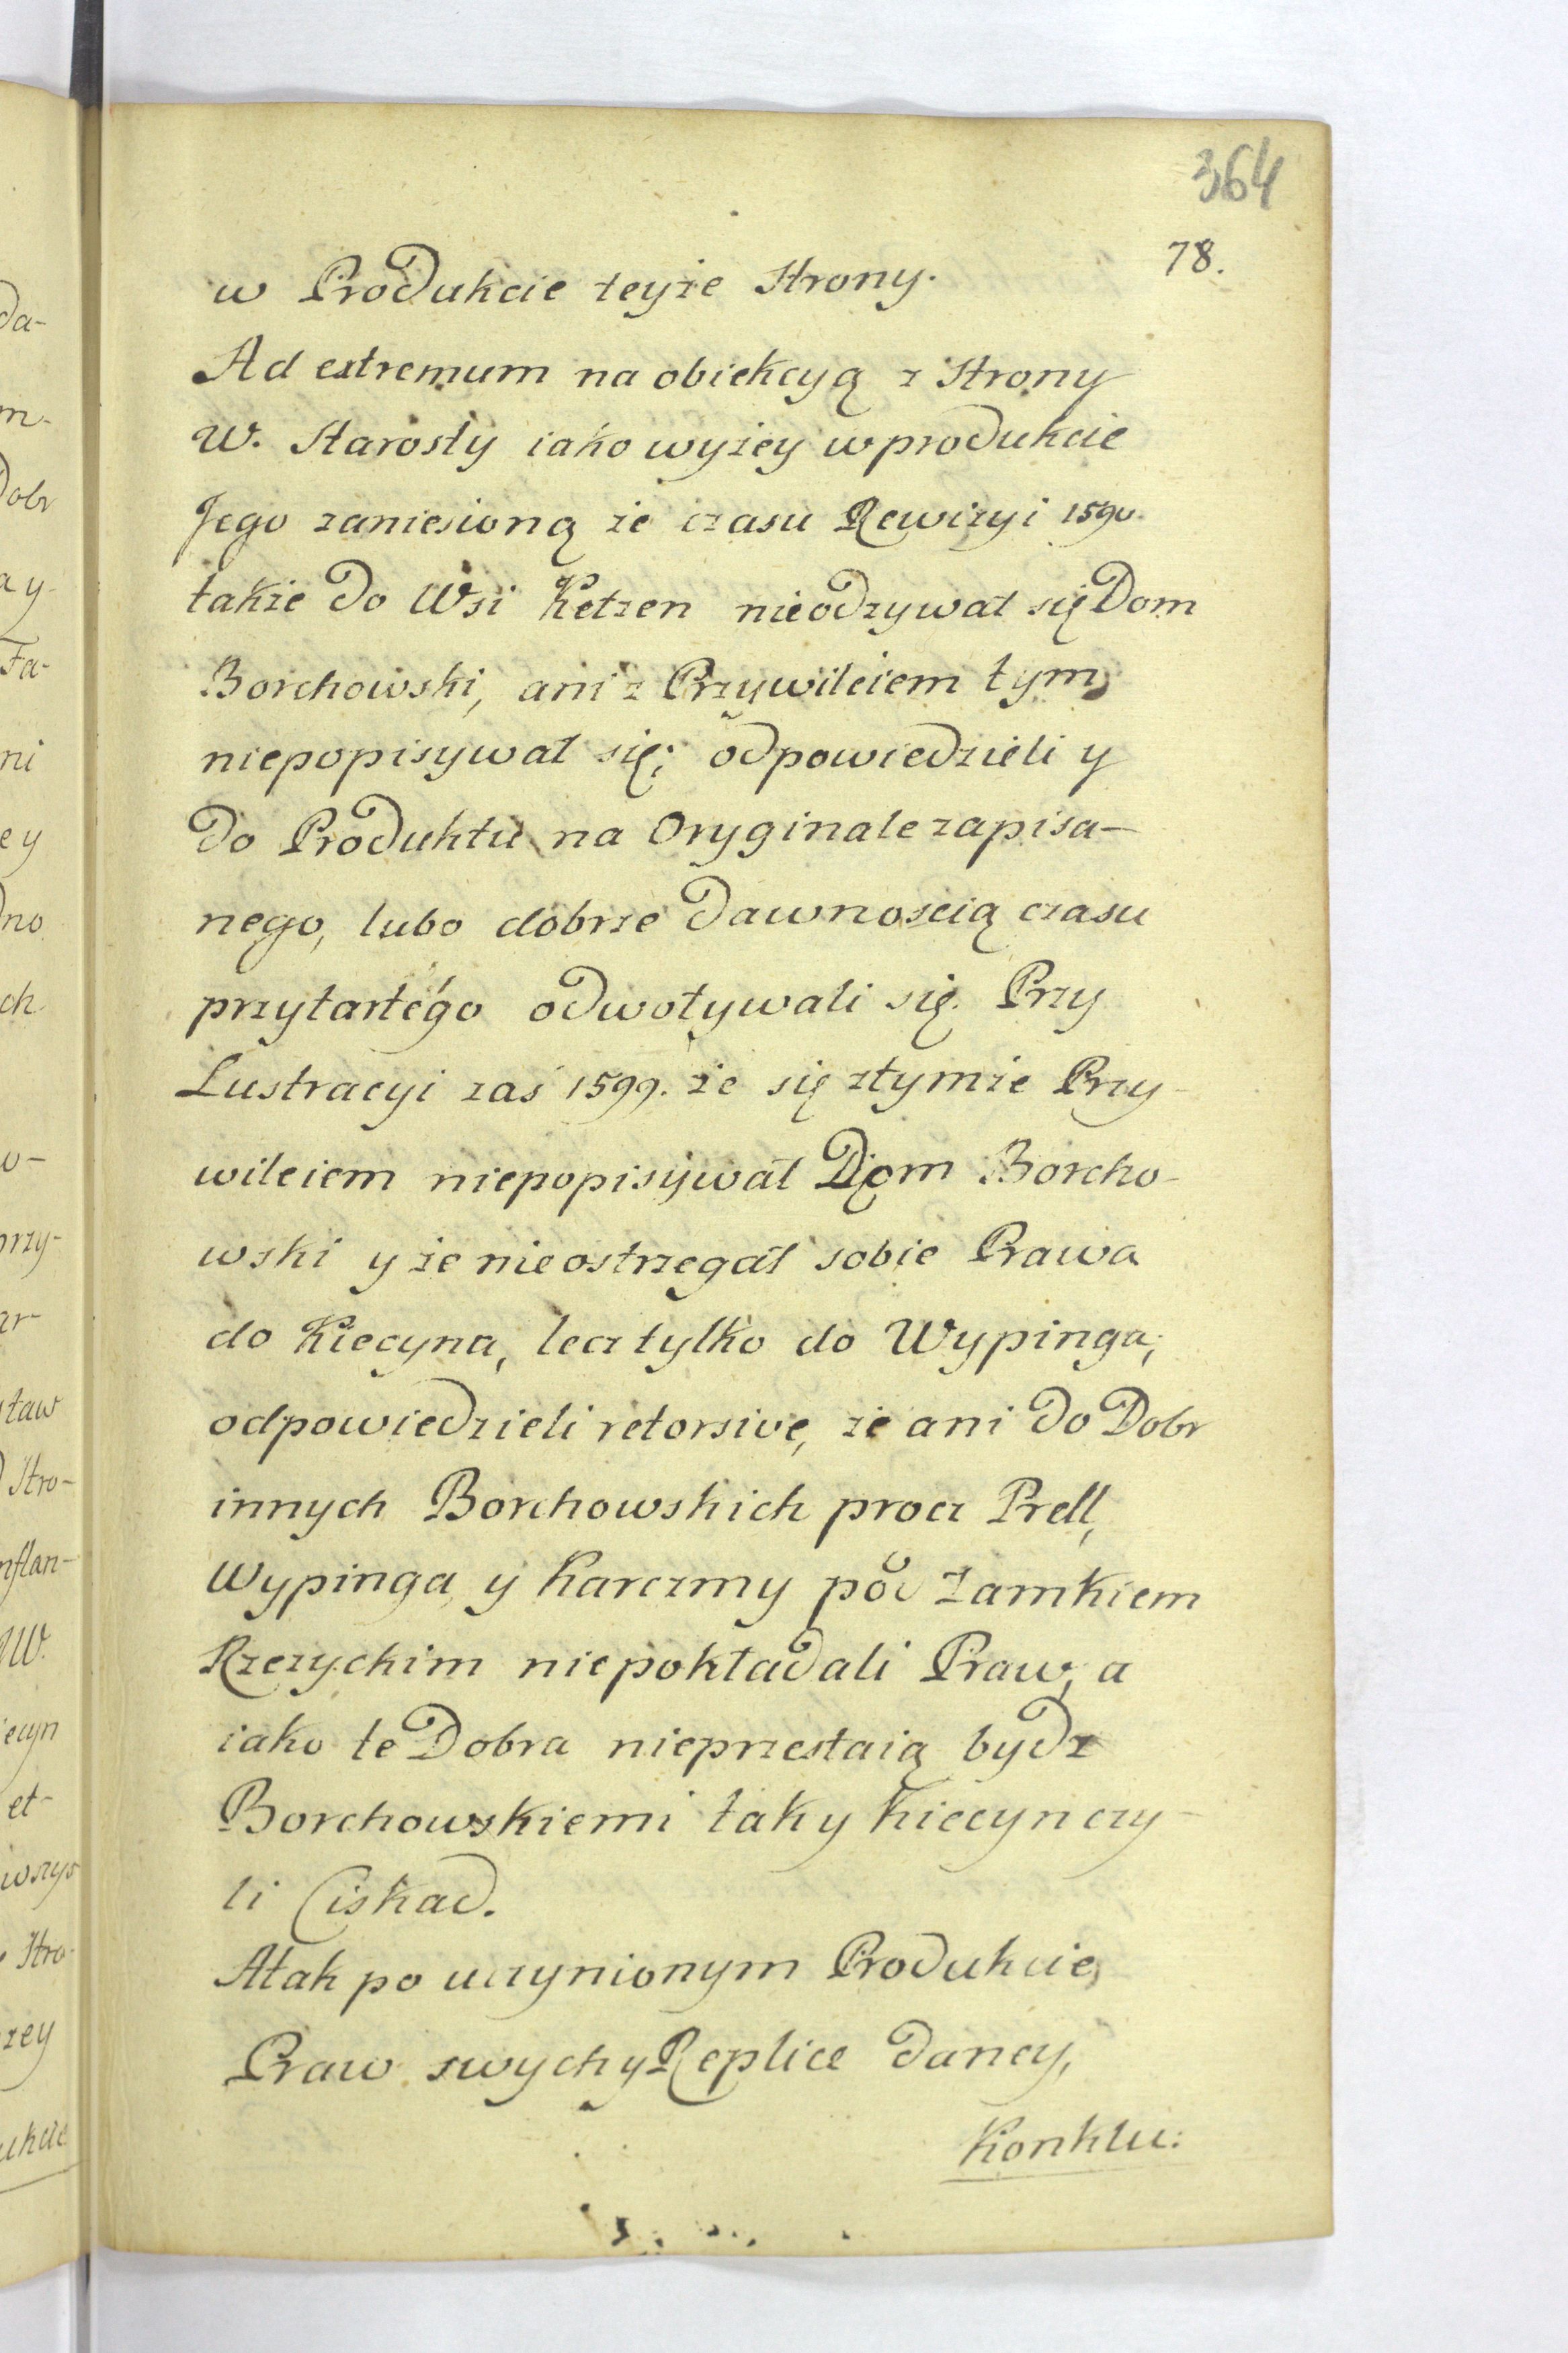 364
78.
w Produkcie teyże Strony.
Ad extremum na obiekcyą z Strony
W. Starosty iako wyżey w produkcie
Jego zaniesioną że czasu Rewizyi 1590.
także do Wsi Ketzen nieodzywał się Dom
Borchowski, ani z Przywileiem tym
niepopisywał się; odpowiedzieli y
do Produktu na Oryginale zapisa-
nego, lubo dobrze dawnością czasu
przytartego odwoływali się. Przy
Lustracyi zaś 1599. że się z tymże Przy-
wileiem niepopisywał Dom Borcho-
wski y że nie ostrzegał sobie Prawa
do Kiecyna, lecz tylko do Wypinga;
odpowiedzieli retorsive, że ani do Dobr
innych Borchowskich procz Prell,
Wypinga y Karczmy pod Zamkiem
Rzezyckim niepokładali Praw, a
iako te Dobra nieprzestaią bydz
Borchowskiemi tak y Kiecyn czy-
li Ciskad.
A tak po uczynionym Produkcie,
Praw swych y Replice daney,
Konklu: